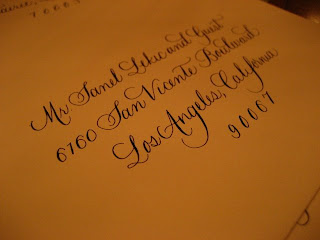 70003
Mr Janel Lekic and Guest
6760 San Vicente Boulevard
Los Angeles, California
90067